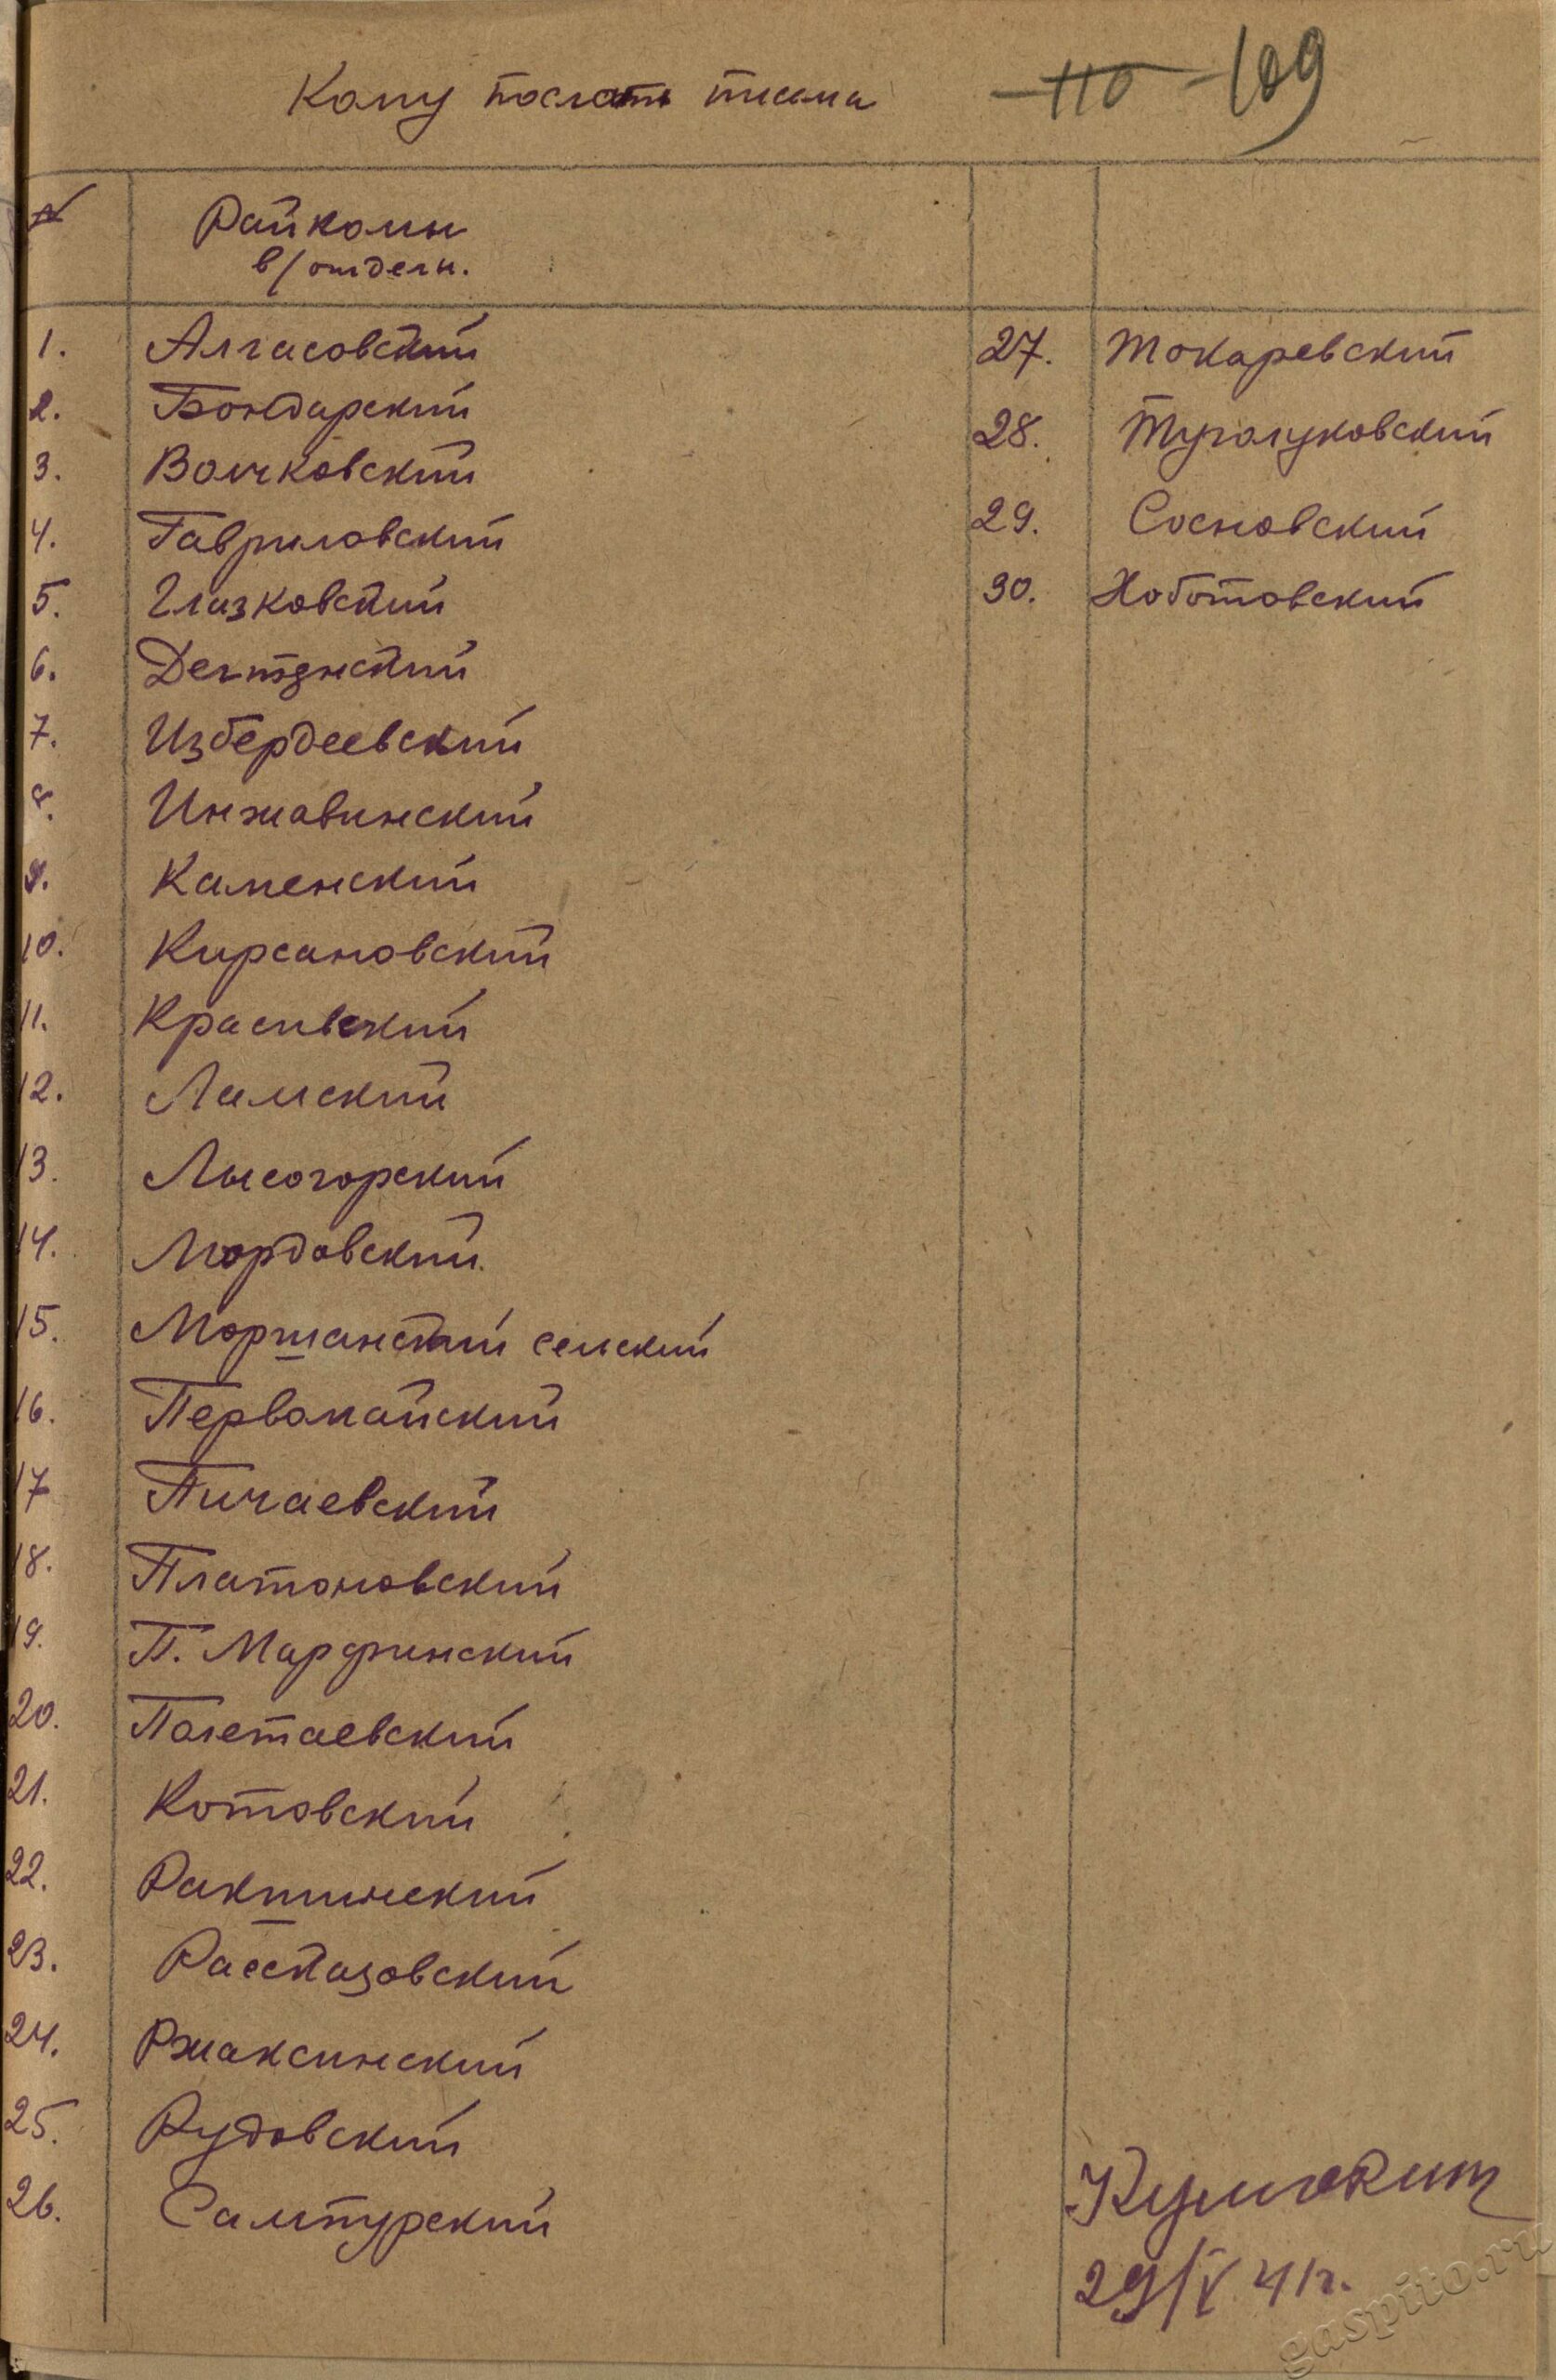 Кому послать письма
110 109
№
Райкомы
в/отделы.
1. Алгасовский
2. Бондарский
3. Волчковский
4. Гавриловский
5. Глазковский
6. Дегтянский
7. Избердеевский
8. Инжавинский
9. Каменский
10. Кирсановский
11. Красивский
12. Ламский
13. Лысогорский
14. Мордовский
15. Моршанский сельский
16. Первомайский
17 Пичаевский
18. Платоновский
19. П. Марфинский
20. Полетаевский
21. Котовский
22. Ракшинский
23. Рассказовский
24. Ржаксинский
25. Рудовский
26. Сампурский
27. Токаревский
28. Туголуковский
29. Сосновский
30. Хоботовский
29/V 41г.
gaspito.ru